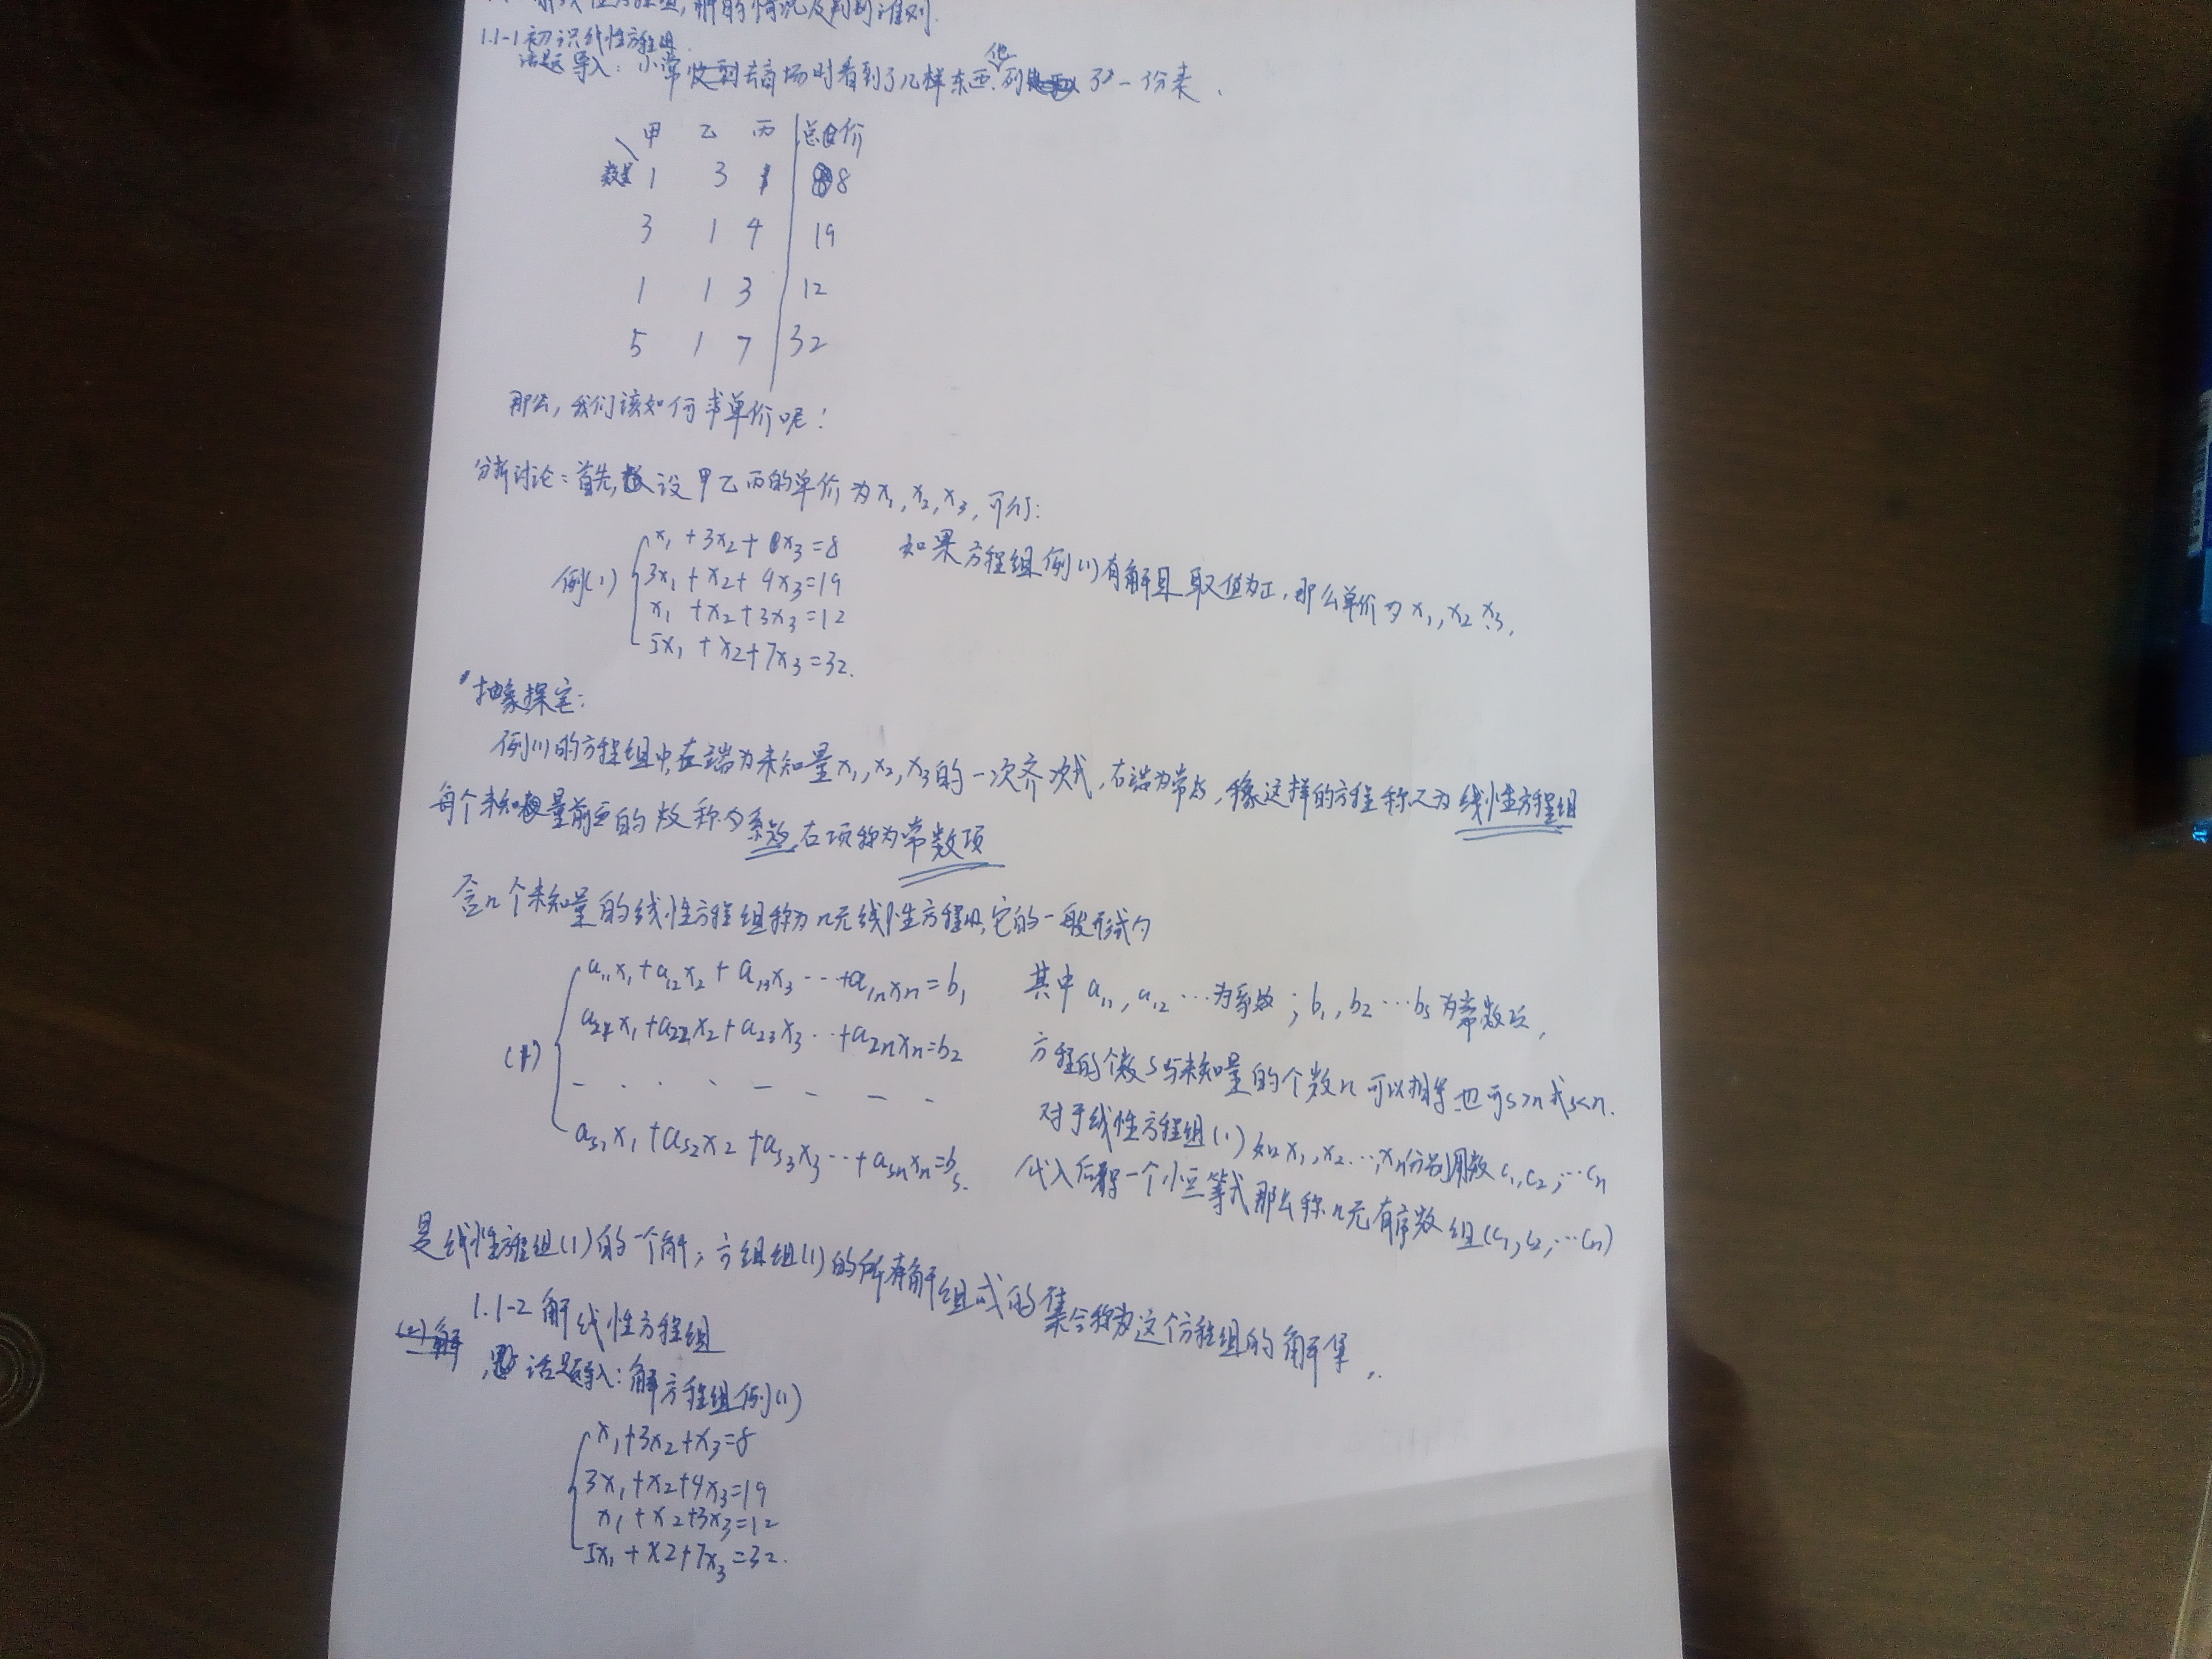 解线性方程组,解的情况及判别准则.
1.1-1 初识线性方程组
话题导入: 小常去商场时看到了几样东西.他列了一份表.
甲 乙 丙 总价
数量 1 3 1 8
3 1 4 19
1 1 3 12
5 1 7 32
那么,我们该如何求单价呢!
分析讨论:首先,设甲乙丙的单价为x₁,x₂,x₃,可得:
例(1)
x₁+3x₂+x₃=8
3x₁+x₂+4x₃=19
x₁+x₂+3x₃=12
5x₁+x₂+7x₃=32.
如果方程组例(1)有解且取值为正,那么单价为x₁,x₂,x₃.
抽象探究:
例(1)的方程组中,左端为未知量x₁,x₂,x₃的一次齐次式,右端为常数,像这样的方程称之为线性方程组
每个未知量前面的数称为系数,右项称为常数项
含n个未知量的线性方程组称为n元线性方程组,它的一般形式为
(1)
a₁₁x₁+a₁₂x₂+a₁₃x₃…+a₁ₙxₙ=b₁
a₂₁x₁+a₂₂x₂+a₂₃x₃…+a₂ₙxₙ=b₂
- · · · - - - -
aₛ₁x₁+aₛ₂x₂+aₛ₃x₃…+aₛₙxₙ=bₛ.
其中a₁₁,a₁₂…为系数;b₁,b₂…bₛ为常数项,
方程的个数s与未知量的个数n可以相等,也可s>n或s<n.
对于线性方程组(1)如x₁,x₂…,xₙ分别用数c₁,c₂,…cₙ
代入后得一个恒等式那么称n元有序数组(c₁,c₂,…cₙ)
是线性方程组(1)的一个解;方组组(1)的所有解组成的集合称为这个方程组的解集,.
1.1-2 解线性方程组
(2)解
话题导入:解方程组例(1)
x₁+3x₂+x₃=8
3x₁+x₂+4x₃=19
x₁+x₂+3x₃=12
5x₁+x2+7x₃=32.